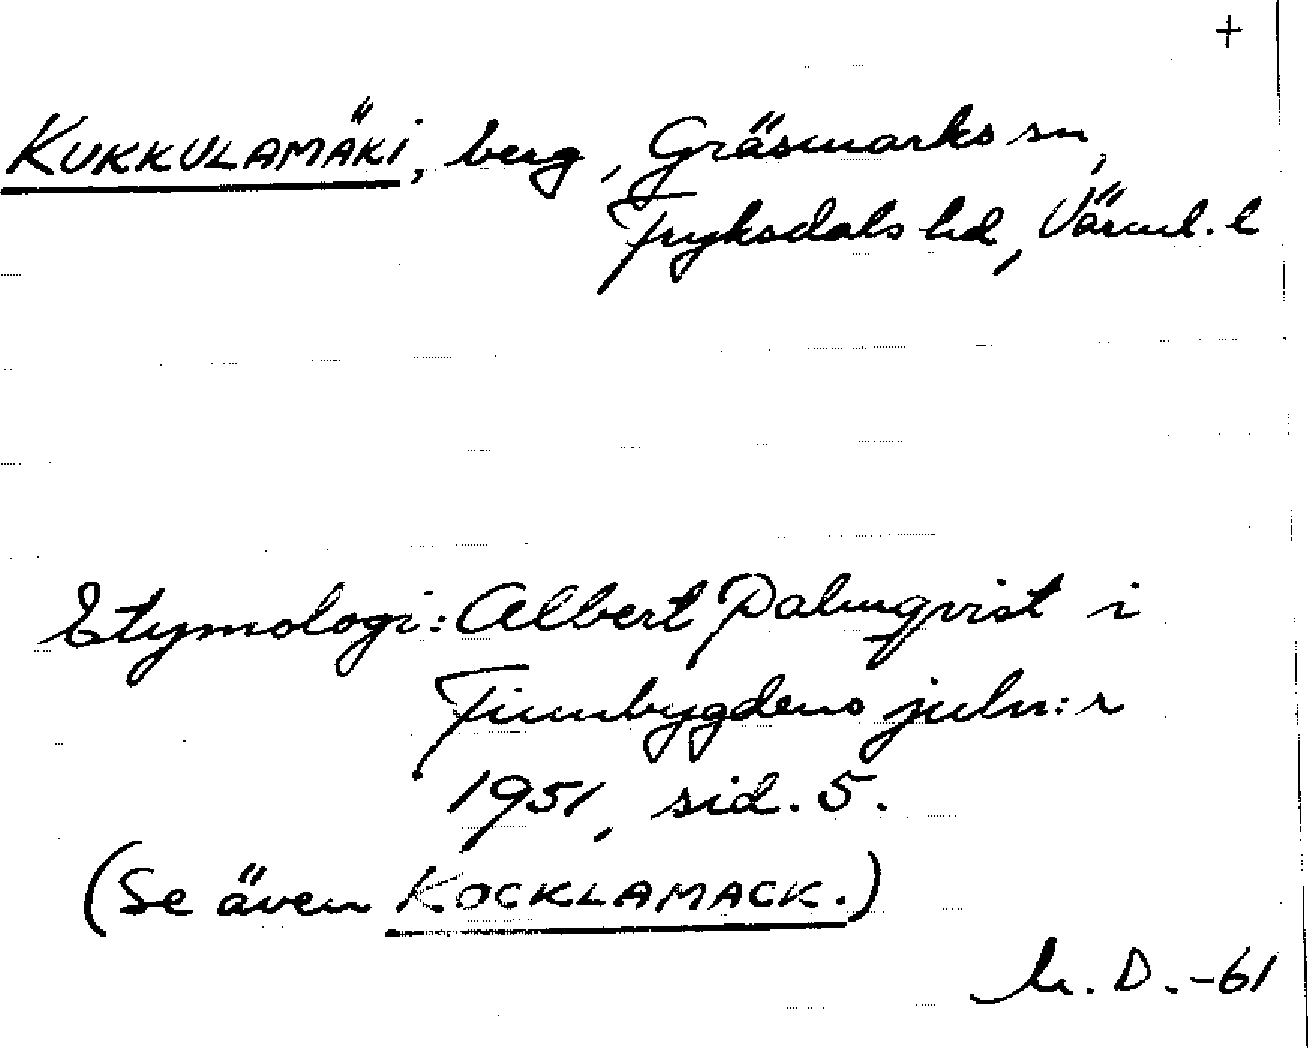 +
KUKKULAMÄKI, berg, Gräsmarks sn,
Fryksdals hd, Värml. l
Etymologi: Albert Palmqvist i
Finnbygdens juln:r
1951, sid. 5.
(Se även KOCKLAMACK.)
D. -61